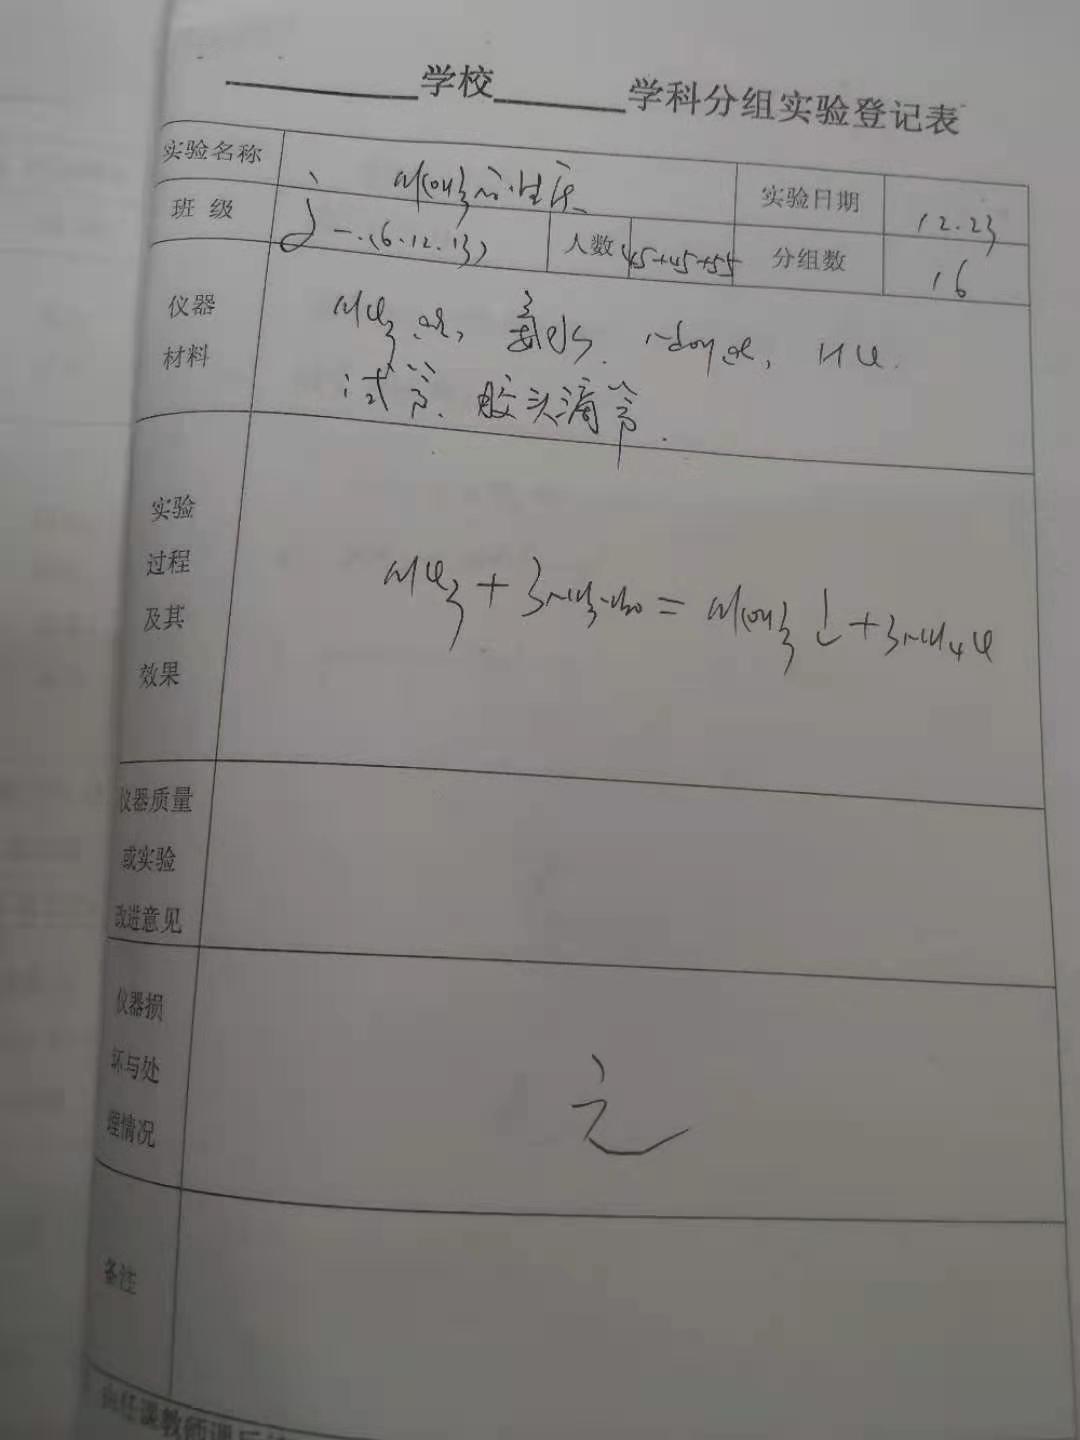 学校 学科分组实验登记表
实验名称 Al(OH)3 实验日期 12.23
班 级 高一.(6.12.13) 人数 45+45+55 分组数 16
仪器
材料
AlCl3 aq, 氨水. NaOH aq, HCl.
试管. 胶头滴管.
实验
过程
及其
效果
AlCl3 + 3NH3·H2O = Al(OH)3 ↓ + 3NH4Cl
仪器质量
或实验
改进意见
仪器损
坏与处
理情况
无
备注
由任课教师课后